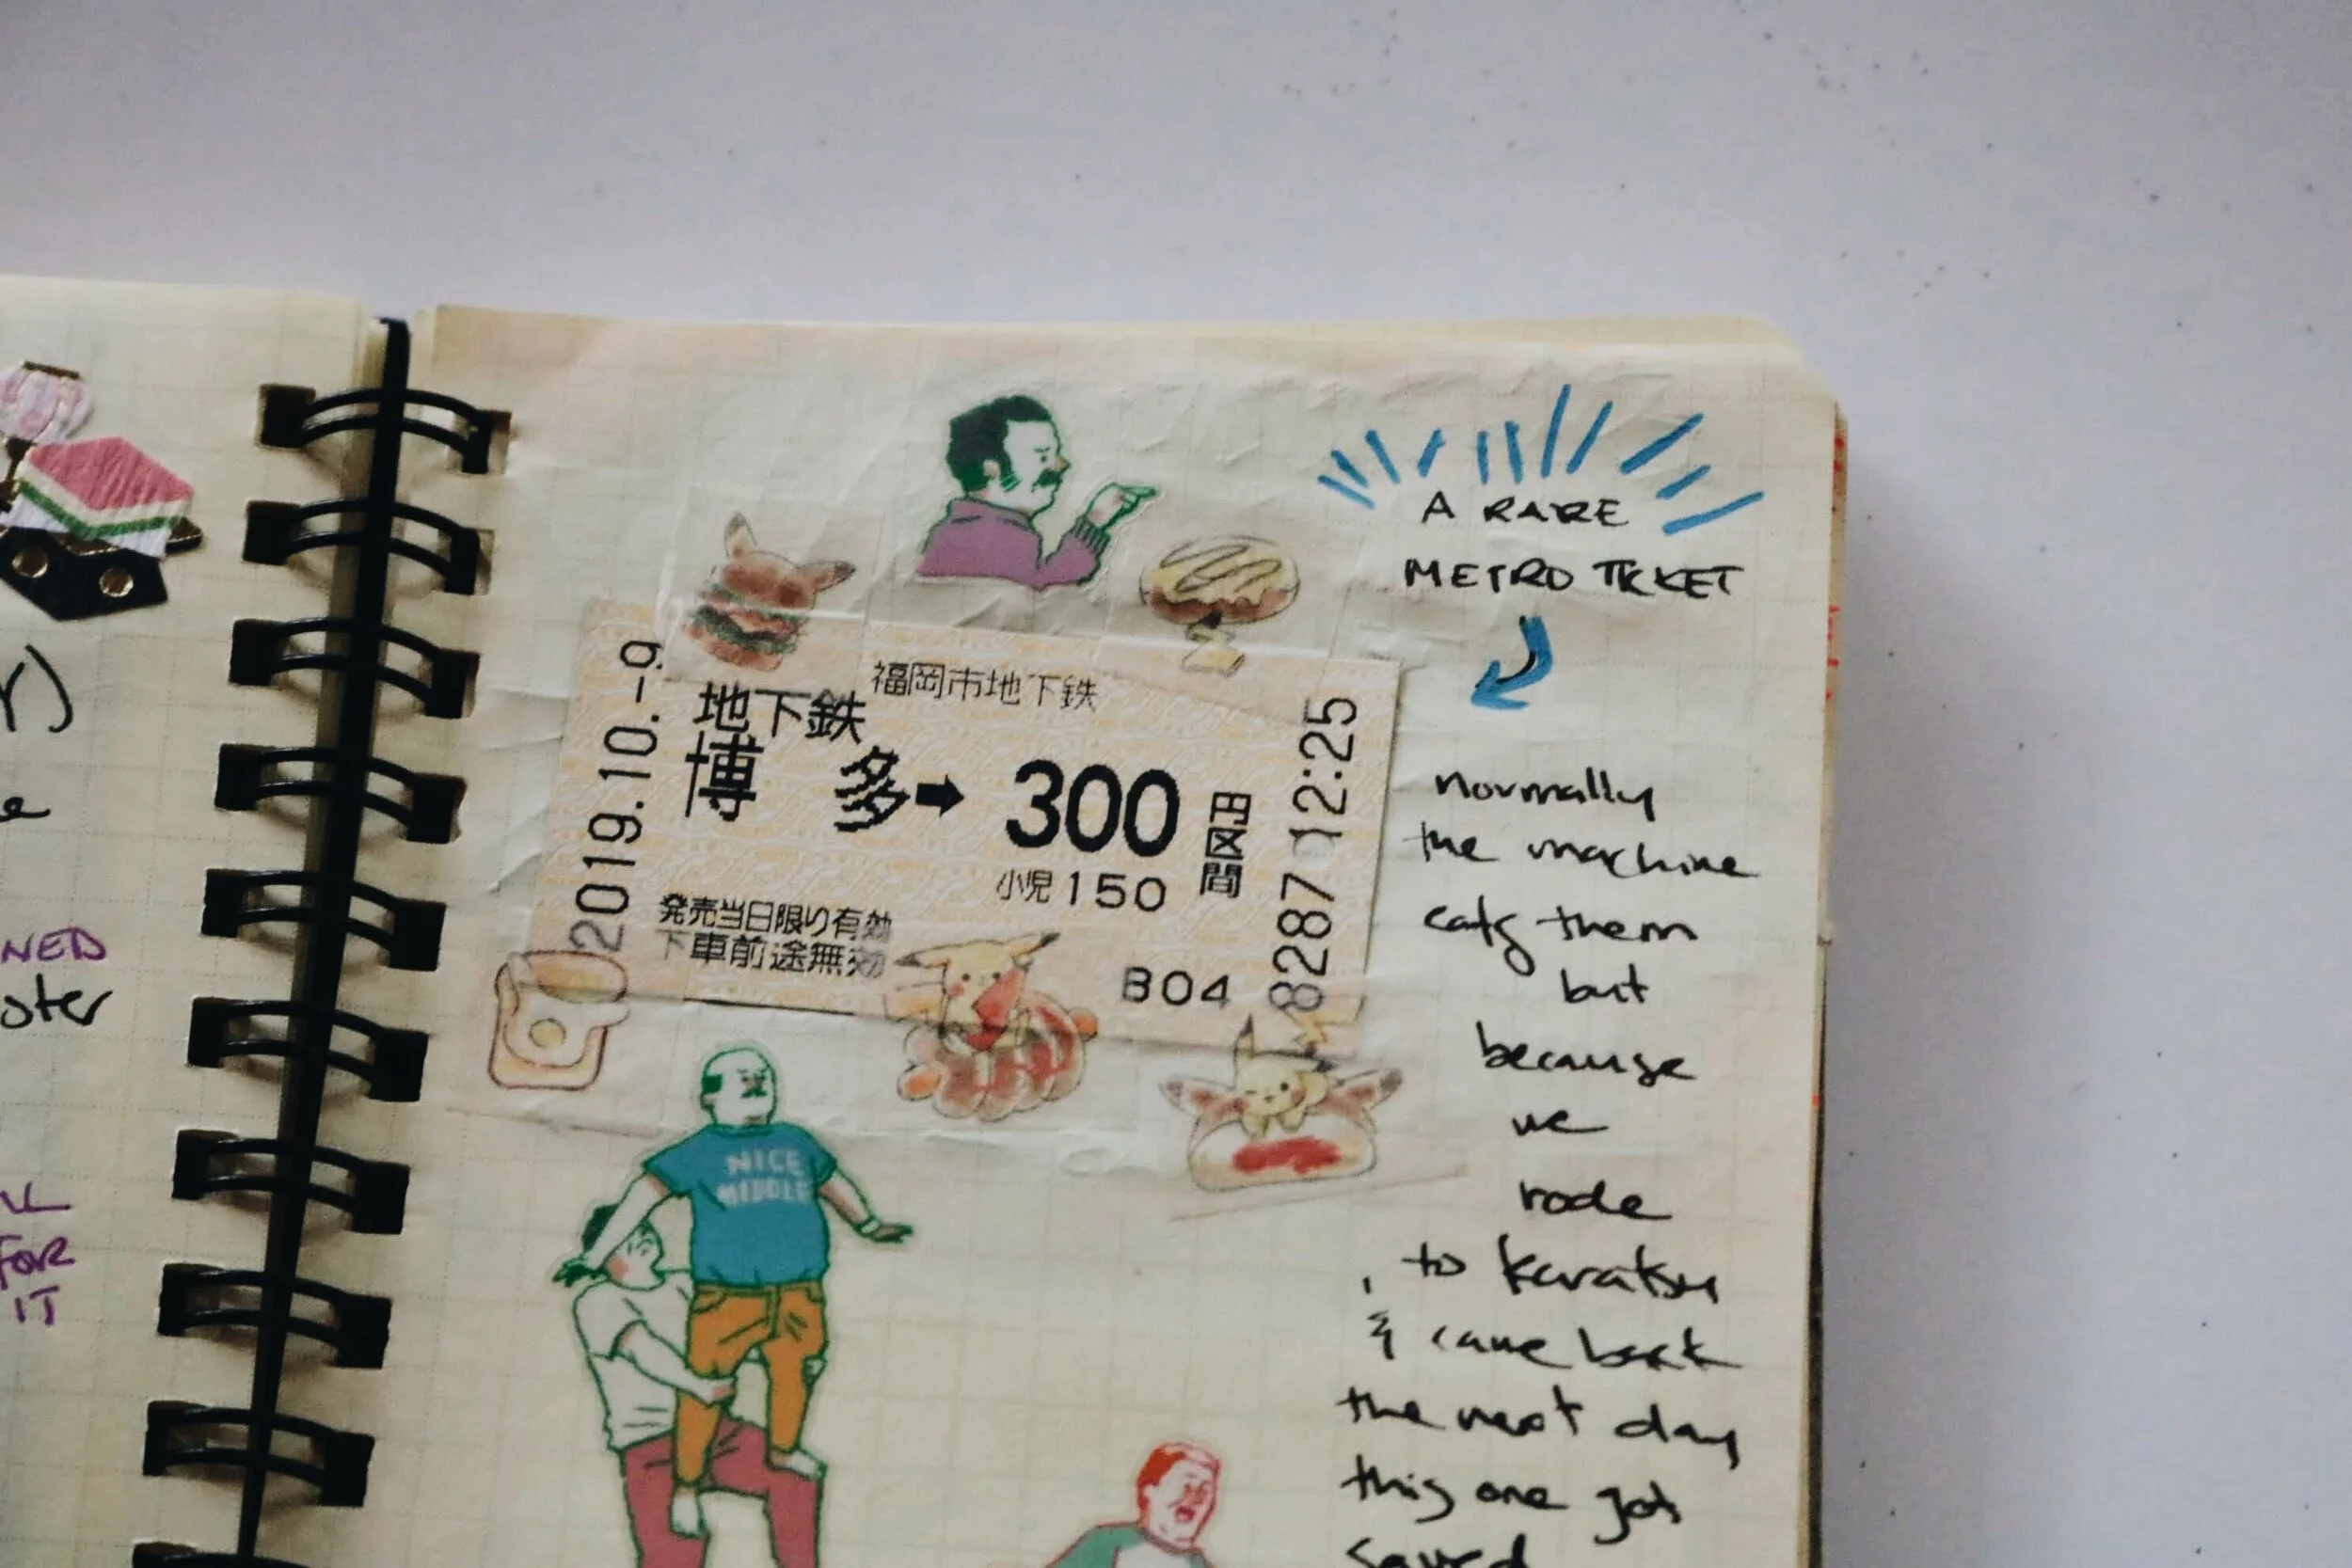 r)
e
NED
oter
FOR
IT
A RARE
METRO TICKET
福岡市地下鉄
2019.10.-9
地下鉄
博多➡300円区間
小児150
発売当日限り有効
下車前途無効
B04
8287 12:25
NICE
MIDDLE
normally
the machine
eats them
but
because
we
rode
to Karatsu
& came back
the next day
this one got
saved